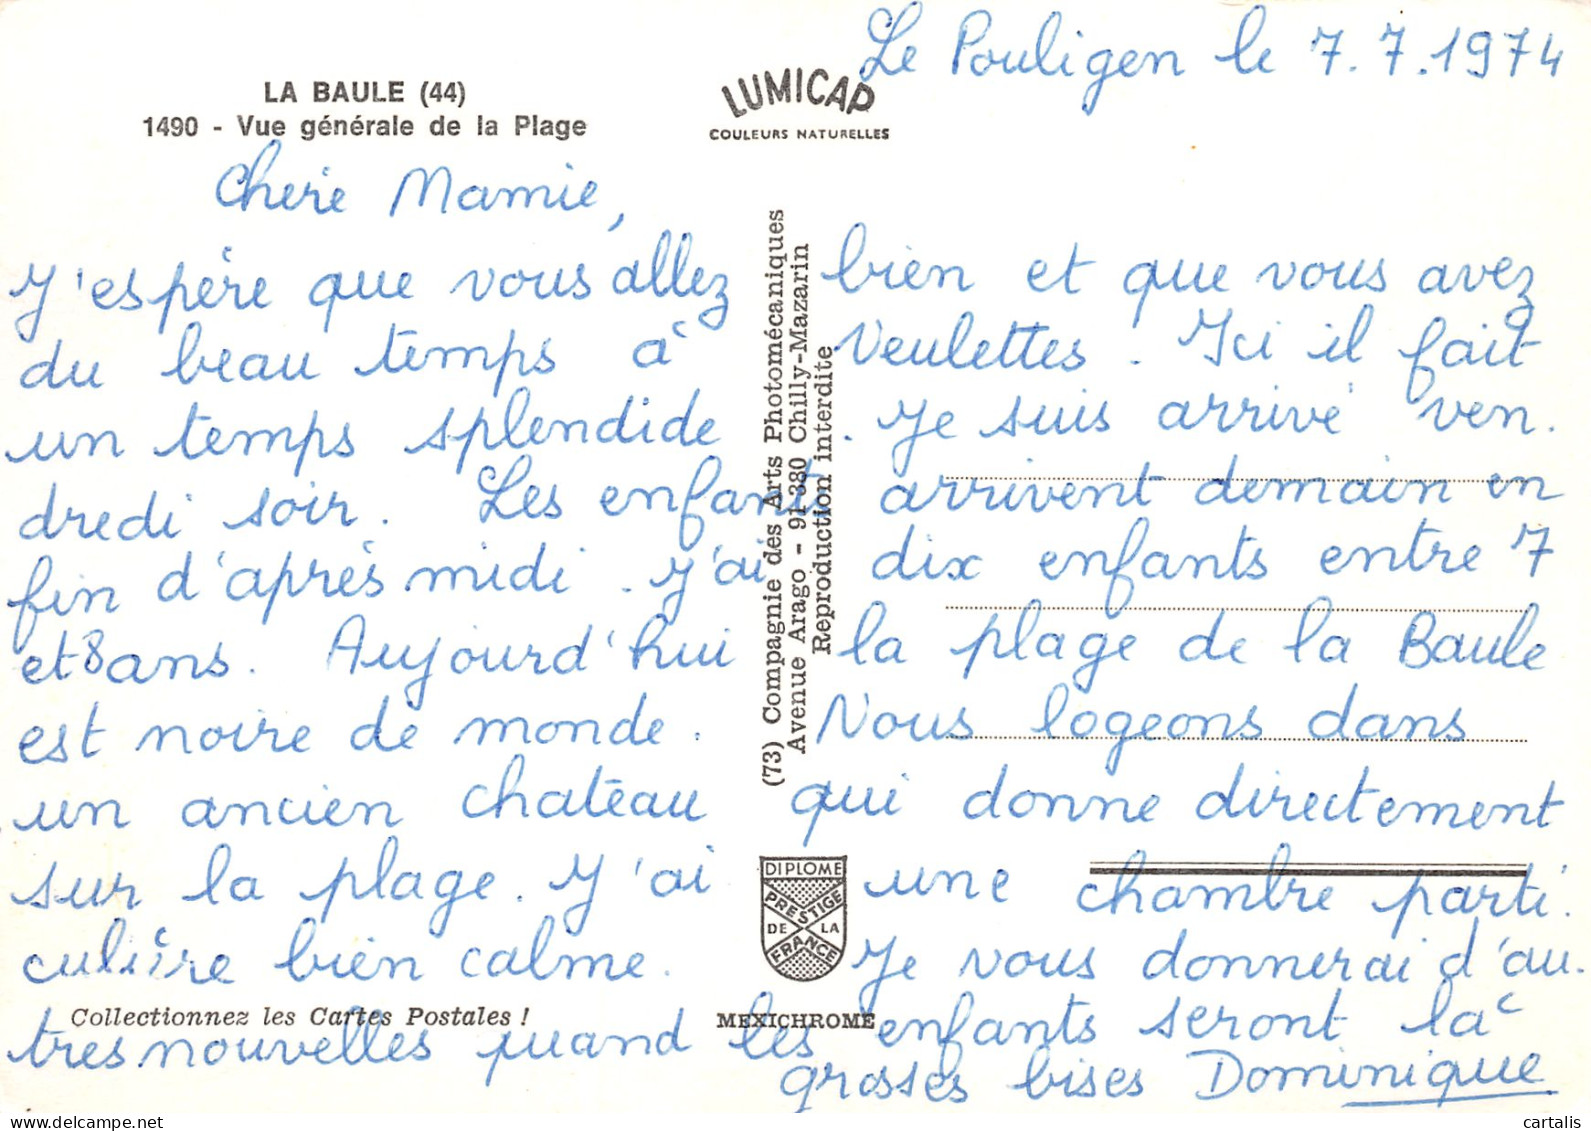 Le Pouligen le 7.7.1974
LA BAULE (44)
1490 - Vue générale de la Plage
LUMICAP
COULEURS NATURELLES
Chère Mamie,
J'espère que vous allez bien et que vous avez
du beau temps à Veulettes. Ici il fait
un temps splendide. Je suis arrivé ven.
dredi soir. Les enfants arrivent demain en
fin d'après midi. J'ai dix enfants entre 7
et 8 ans. Aujourd'hui la plage de la Baule
est noire de monde. Nous logeons dans
un ancien château qui donne directement
sur la plage. J'ai une chambre parti.
culière bien calme. Je vous donnerai d'au.
tres nouvelles quand les enfants seront là
grosses bises Dominique
(73) Compagnie des Arts Photomécaniques
Avenue Arago - 91-380 Chilly-Mazarin
Reproduction interdite
DIPLOME
PRESTIGE
DE LA
FRANCE
Collectionnez les Cartes Postales !
MEXICHROME
cartalis
delcampe.net